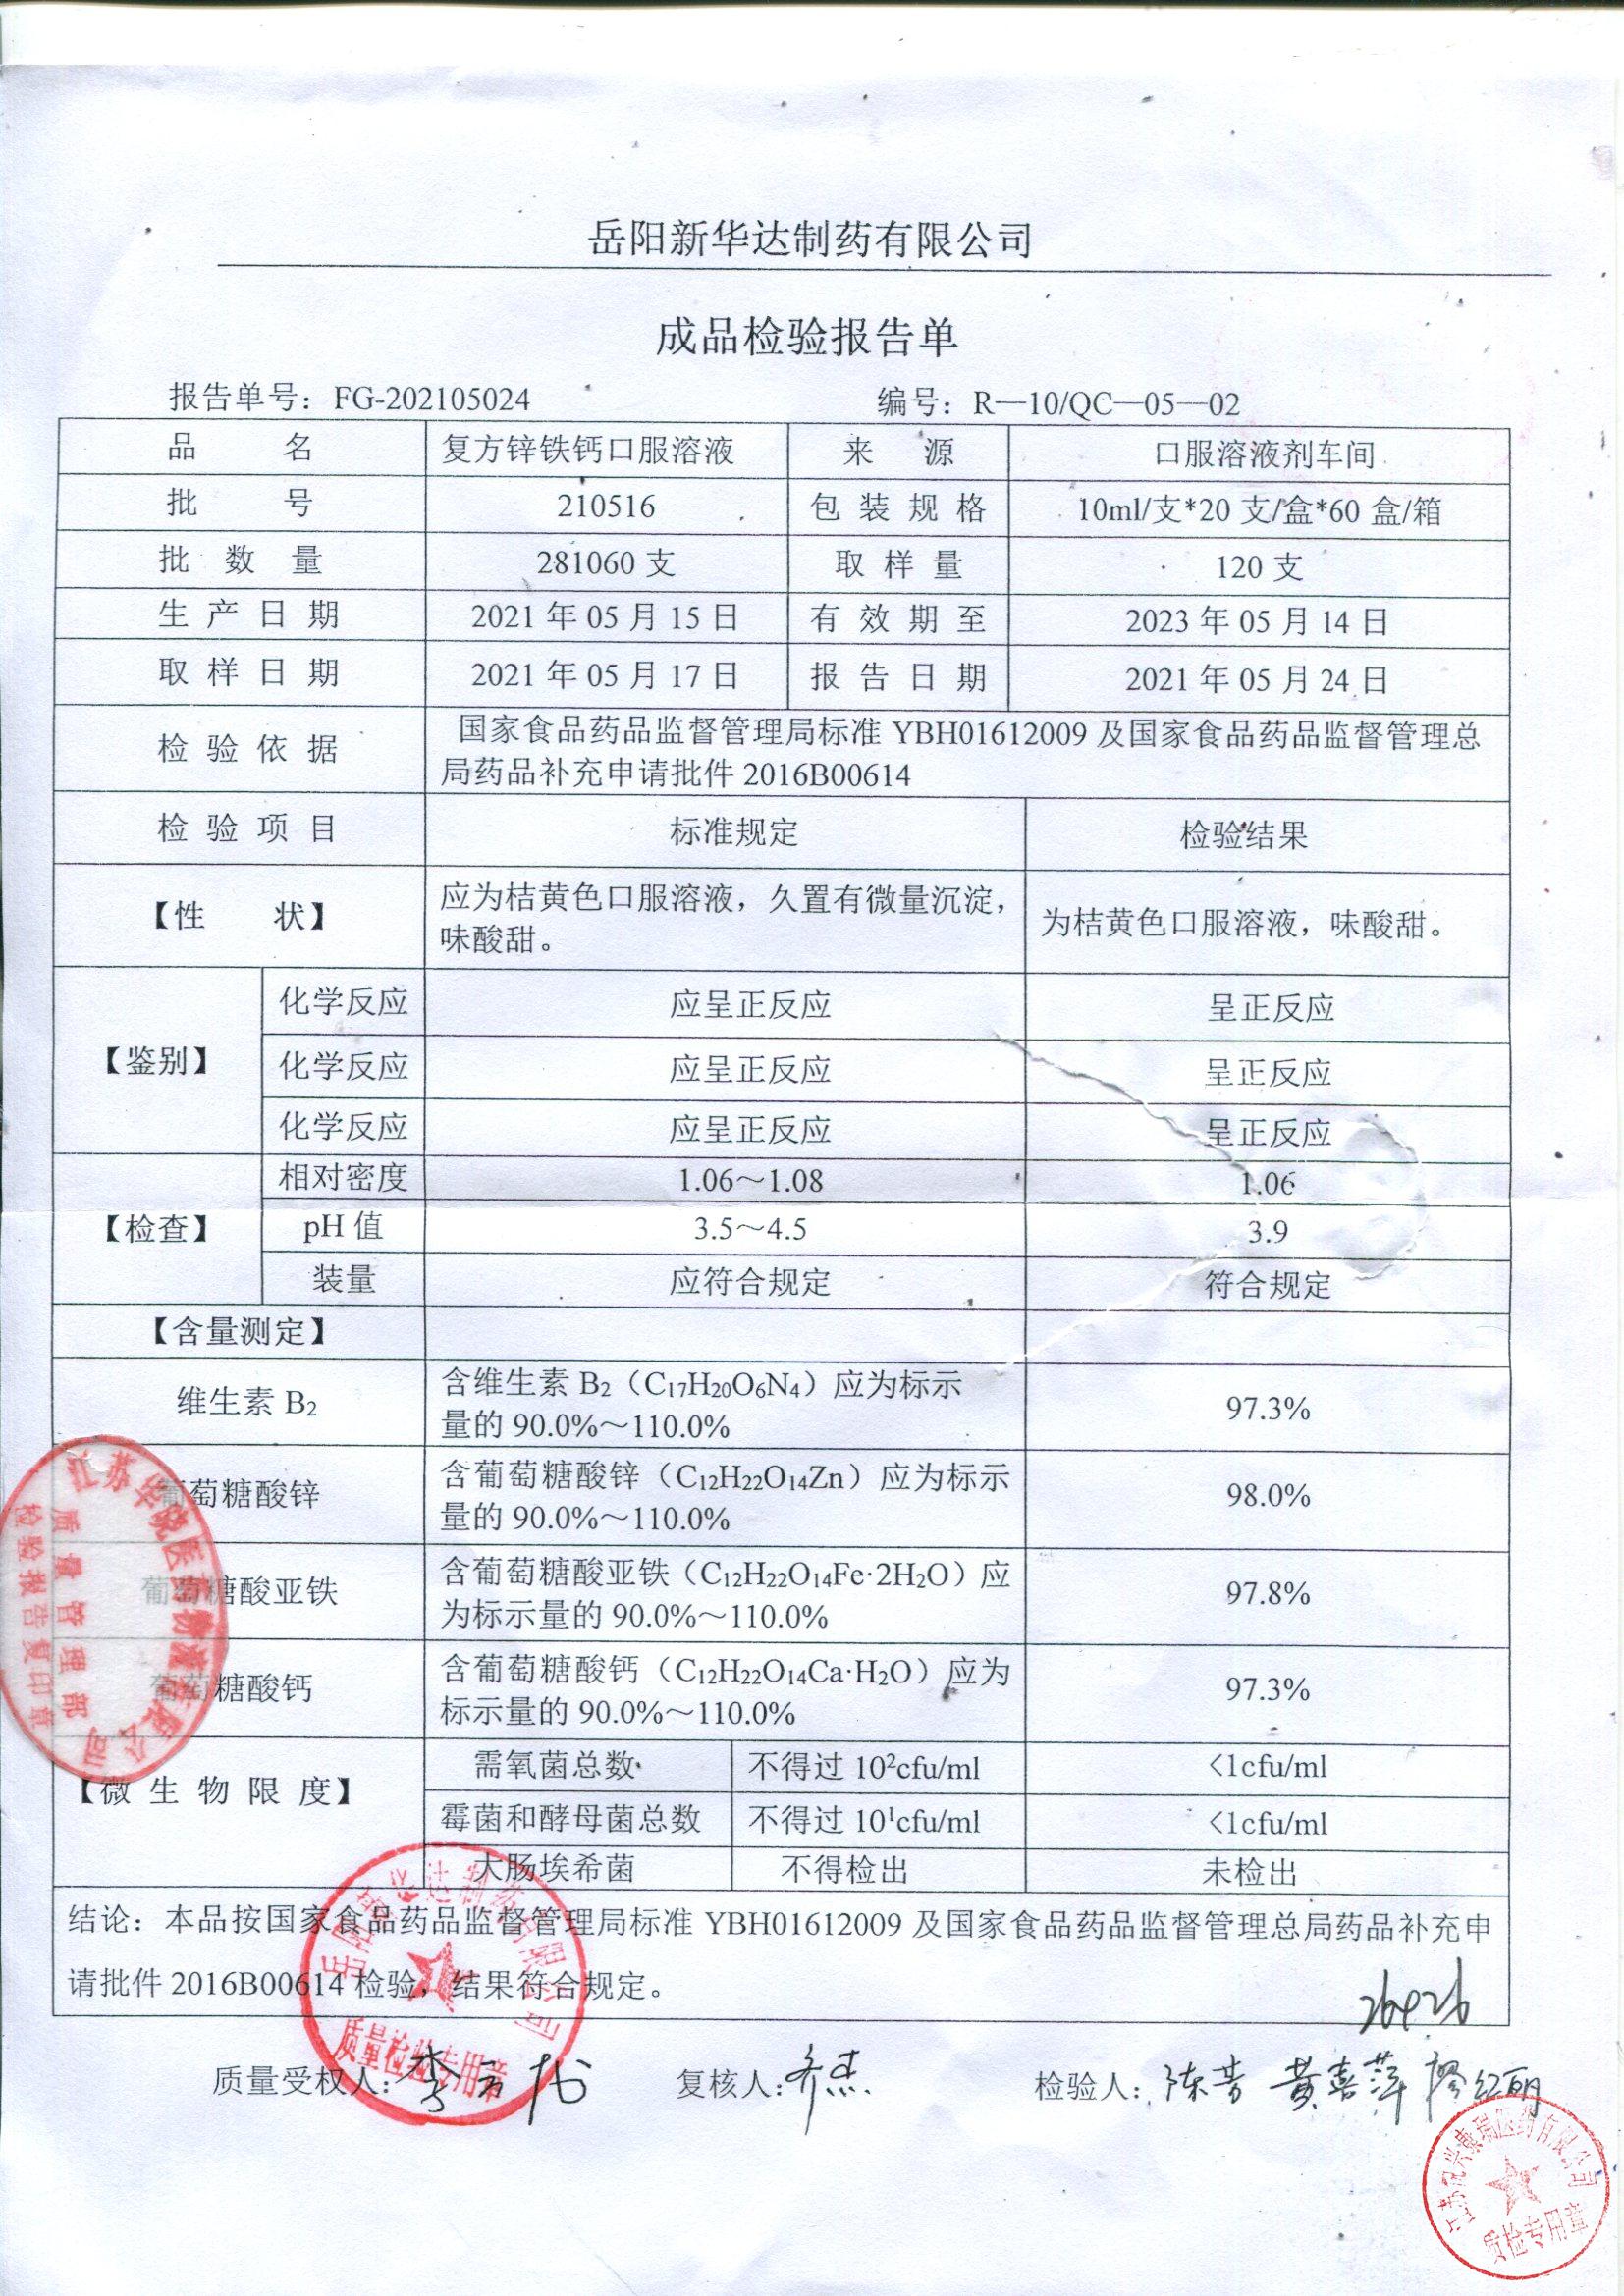 岳阳新华达制药有限公司
成品检验报告单
报告单号：FG-202105024 编号：R—10/QC—05—02
品 名 复方锌铁钙口服溶液 来 源 口服溶液剂车间
批 号 210516 包 装 规 格 10ml/支*20 支/盒*60 盒/箱
批 数 量 281060 支 取 样 量 120 支
生 产 日 期 2021 年 05 月 15 日 有 效 期 至 2023 年 05 月 14 日
取 样 日 期 2021 年 05 月 17 日 报 告 日 期 2021 年 05 月 24 日
检 验 依 据 国家食品药品监督管理局标准 YBH01612009 及国家食品药品监督管理总
局药品补充申请批件 2016B00614
检 验 项 目 标准规定 检验结果
【性 状】 应为桔黄色口服溶液，久置有微量沉淀，
味酸甜。 为桔黄色口服溶液，味酸甜。
【鉴别】 化学反应 应呈正反应 呈正反应
化学反应 应呈正反应 呈正反应
化学反应 应呈正反应 呈正反应
【检查】 相对密度 1.06～1.08 1.06
pH 值 3.5～4.5 3.9
装量 应符合规定 符合规定
【含量测定】
维生素 B₂ 含维生素 B₂（C₁₇H₂₀O₆N₄）应为标示
量的 90.0%～110.0% 97.3%
葡萄糖酸锌 含葡萄糖酸锌（C₁₂H₂₂O₁₄Zn）应为标示
量的 90.0%～110.0% 98.0%
葡萄糖酸亚铁 含葡萄糖酸亚铁（C₁₂H₂₂O₁₄Fe·2H₂O）应
为标示量的 90.0%～110.0% 97.8%
葡萄糖酸钙 含葡萄糖酸钙（C₁₂H₂₂O₁₄Ca·H₂O）应为
标示量的 90.0%～110.0% 97.3%
【微 生 物 限 度】 需氧菌总数 不得过 10²cfu/ml <1cfu/ml
霉菌和酵母菌总数 不得过 10¹cfu/ml <1cfu/ml
大肠埃希菌 不得检出 未检出
结论：本品按国家食品药品监督管理局标准 YBH01612009 及国家食品药品监督管理总局药品补充申
请批件 2016B00614 检验，结果符合规定。
质量受权人： 复核人：齐杰 检验人：陈芳 黄喜萍 廖红丽
质量管理部
检验报告复印章
岳阳新华达制药有限公司
质量检验专用章
质检专用章